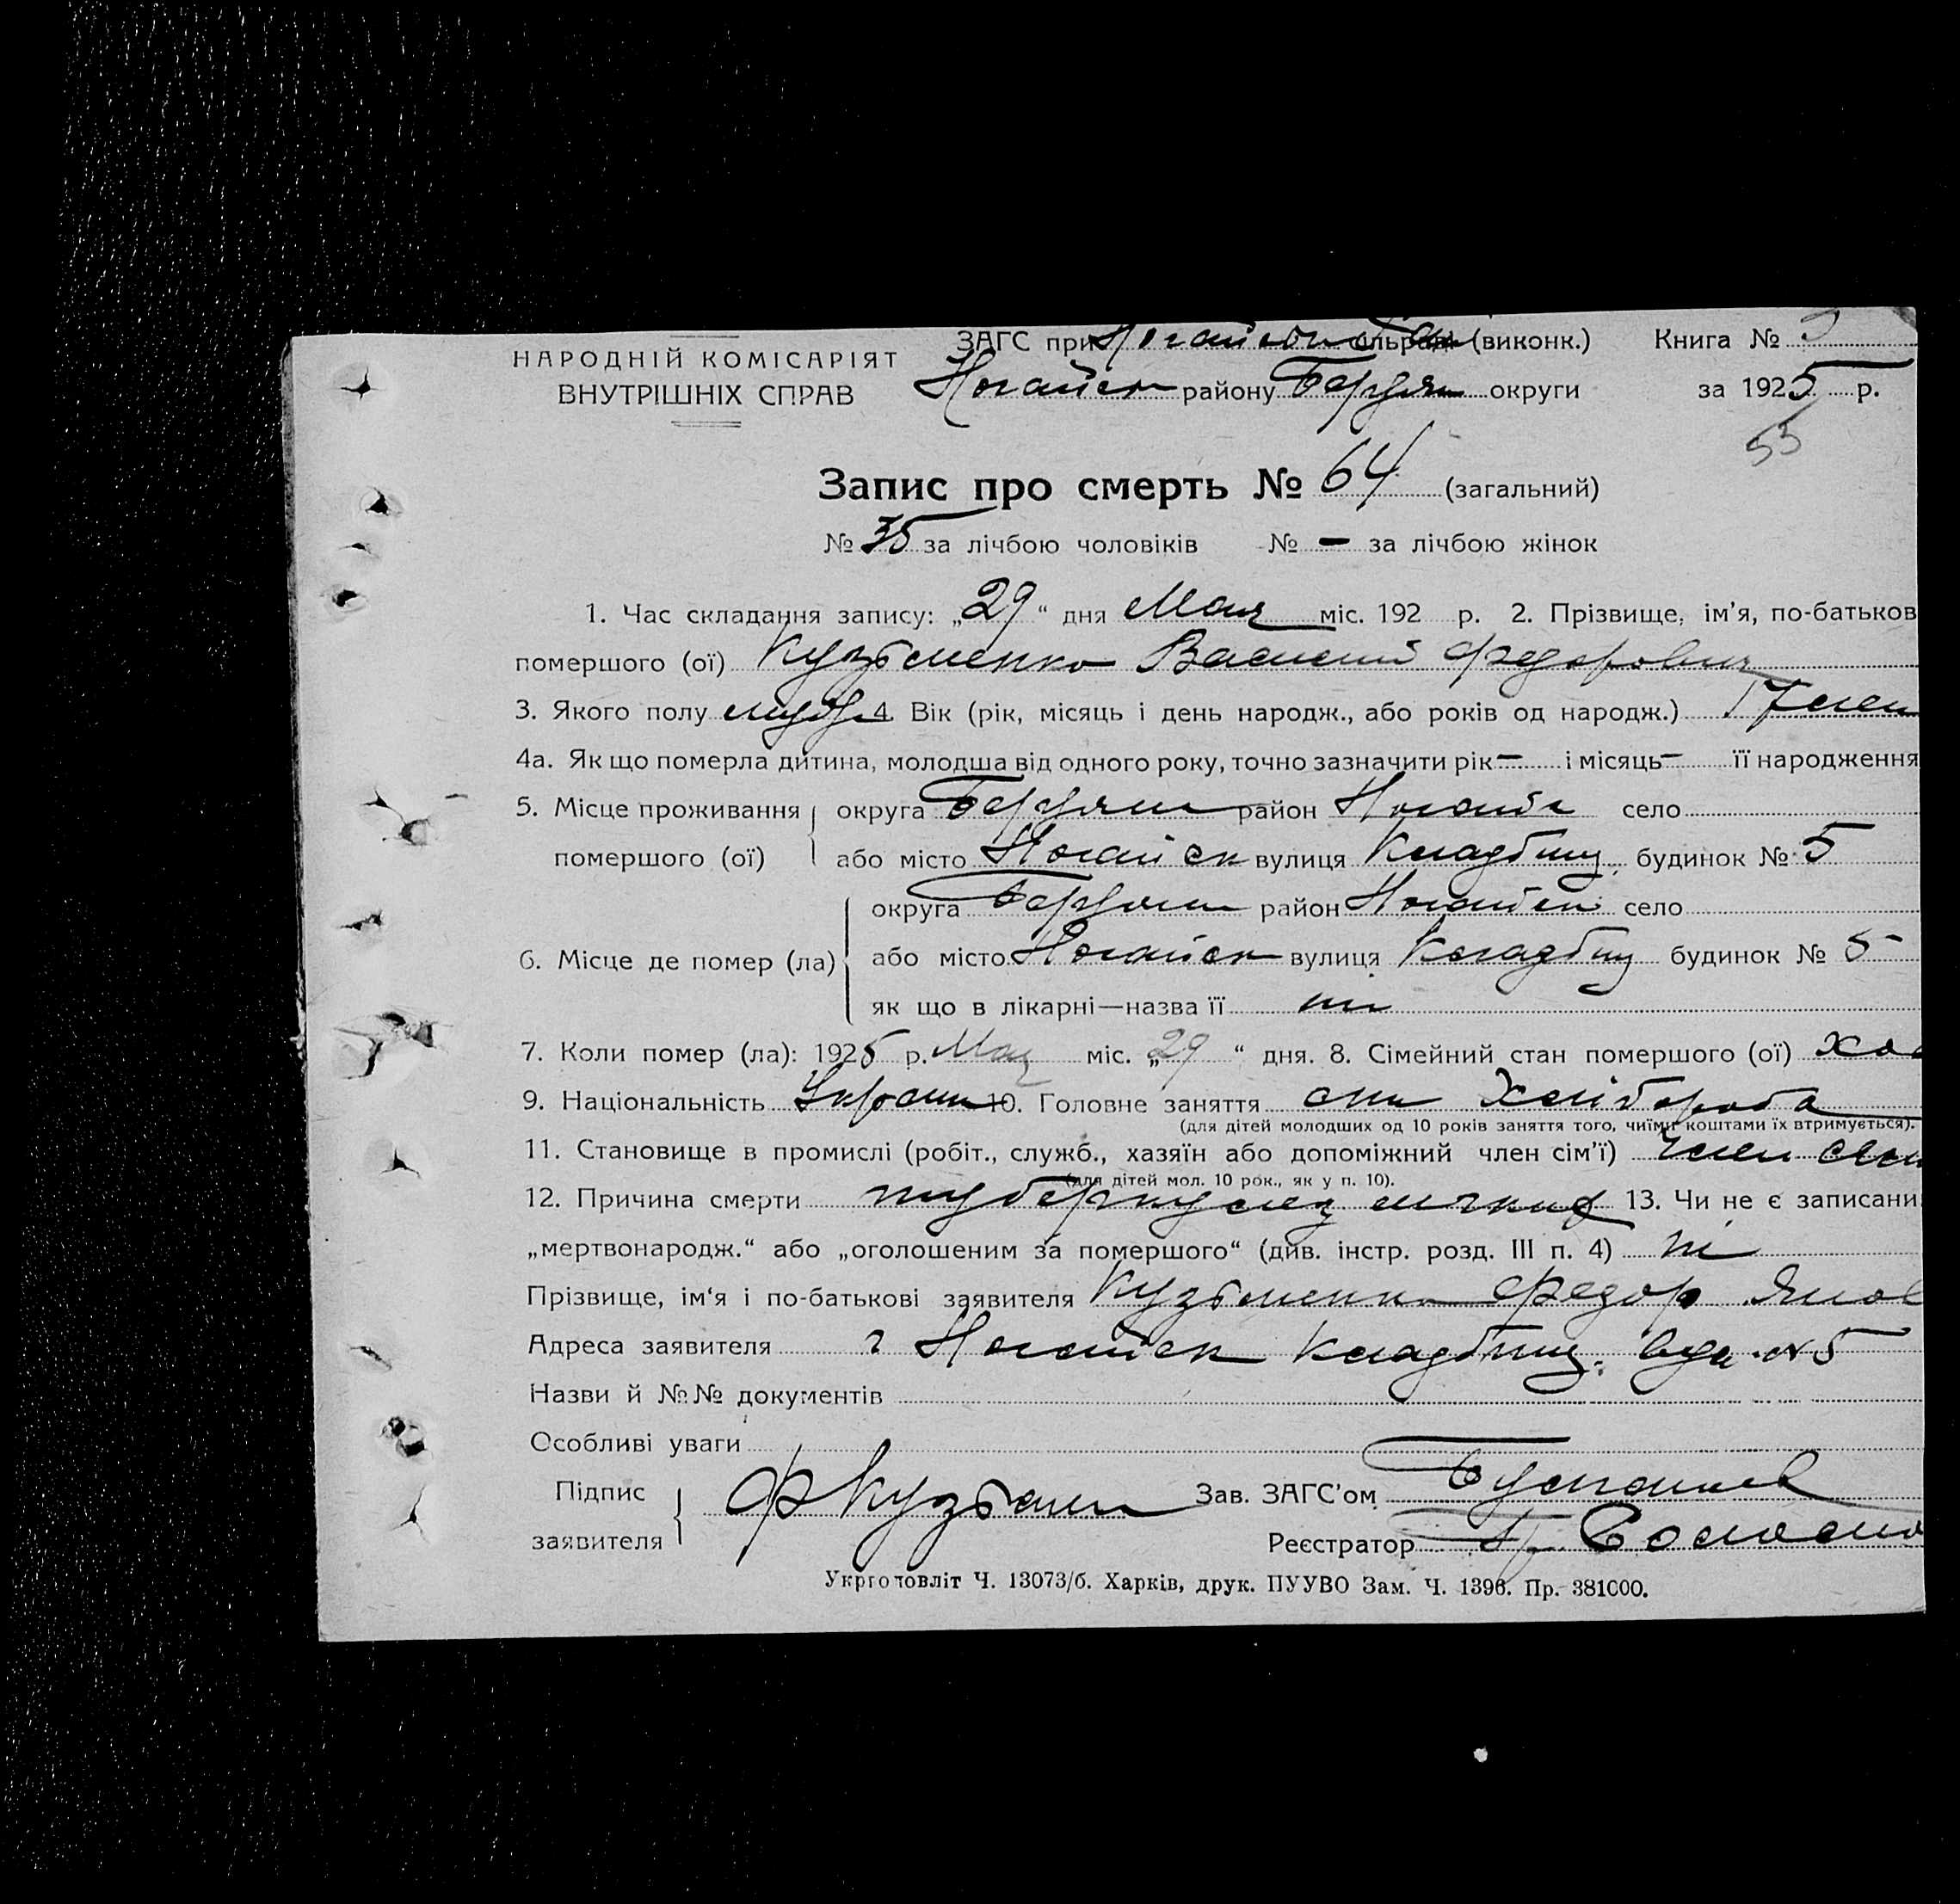 НАРОДНІЙ КОМІСАРІЯТ
ВНУТРІШНІХ СПРАВ
ЗАГС при (виконк.) Книга №
Ногайск району Бердян округи за 1925 р.
55
Запис про смерть № 64 (загальний)
№ 35 за лічбою чоловіків № — за лічбою жінок
1. Час складання запису: „29“ дня Мая міс. 192 р. 2. Прізвище, ім’я, по-батьков
помершого (ої) Кузьменко Василий Федорович
3. Якого полу 4. Вік (рік, місяць і день народж., або років од народж.) 17
4а. Як що померла дитина, молодша від одного року, точно зазначити рік — і місяць — її народження
5. Місце проживання помершого (ої) округа Бердян район Ногайск село
або місто Ногайск вулиця Кладбищ. будинок № 5
6. Місце де помер (ла) округа Бердян район Ногайск село
або місто Ногайск вулиця Кладбищ будинок № 5
як що в лікарні—назва її ні
7. Коли помер (ла): 1925 р. Мая міс. „29“ дня. 8. Сімейний стан помершого (ої) хол
9. Національність Украин 10. Головне заняття син Хлібороба
(для дітей молодших од 10 років заняття того, чиїми коштами їх втримується).
11. Становище в промислі (робіт., служб., хазяїн або допоміжний член сім’ї) член сем
(для дітей мол. 10 рок., як у п. 10).
12. Причина смерти туберкулез легких 13. Чи не є записани
„мертвонародж.“ або „оголошеним за помершого“ (див. інстр. розд. III п. 4) ні
Прізвище, ім‘я і по-батькові заявителя Кузьменко Федор Яков
Адреса заявителя г Ногайск Кладбищ. вул. № 5
Назви й №№ документів
Особливі уваги
Підпис заявителя Ф Кузьмен Зав. ЗАГС’ом
Реєстратор
Укрголовліт Ч. 13073/б. Харків, друк. ПУУВО Зам. Ч. 1396. Пр. 381000.